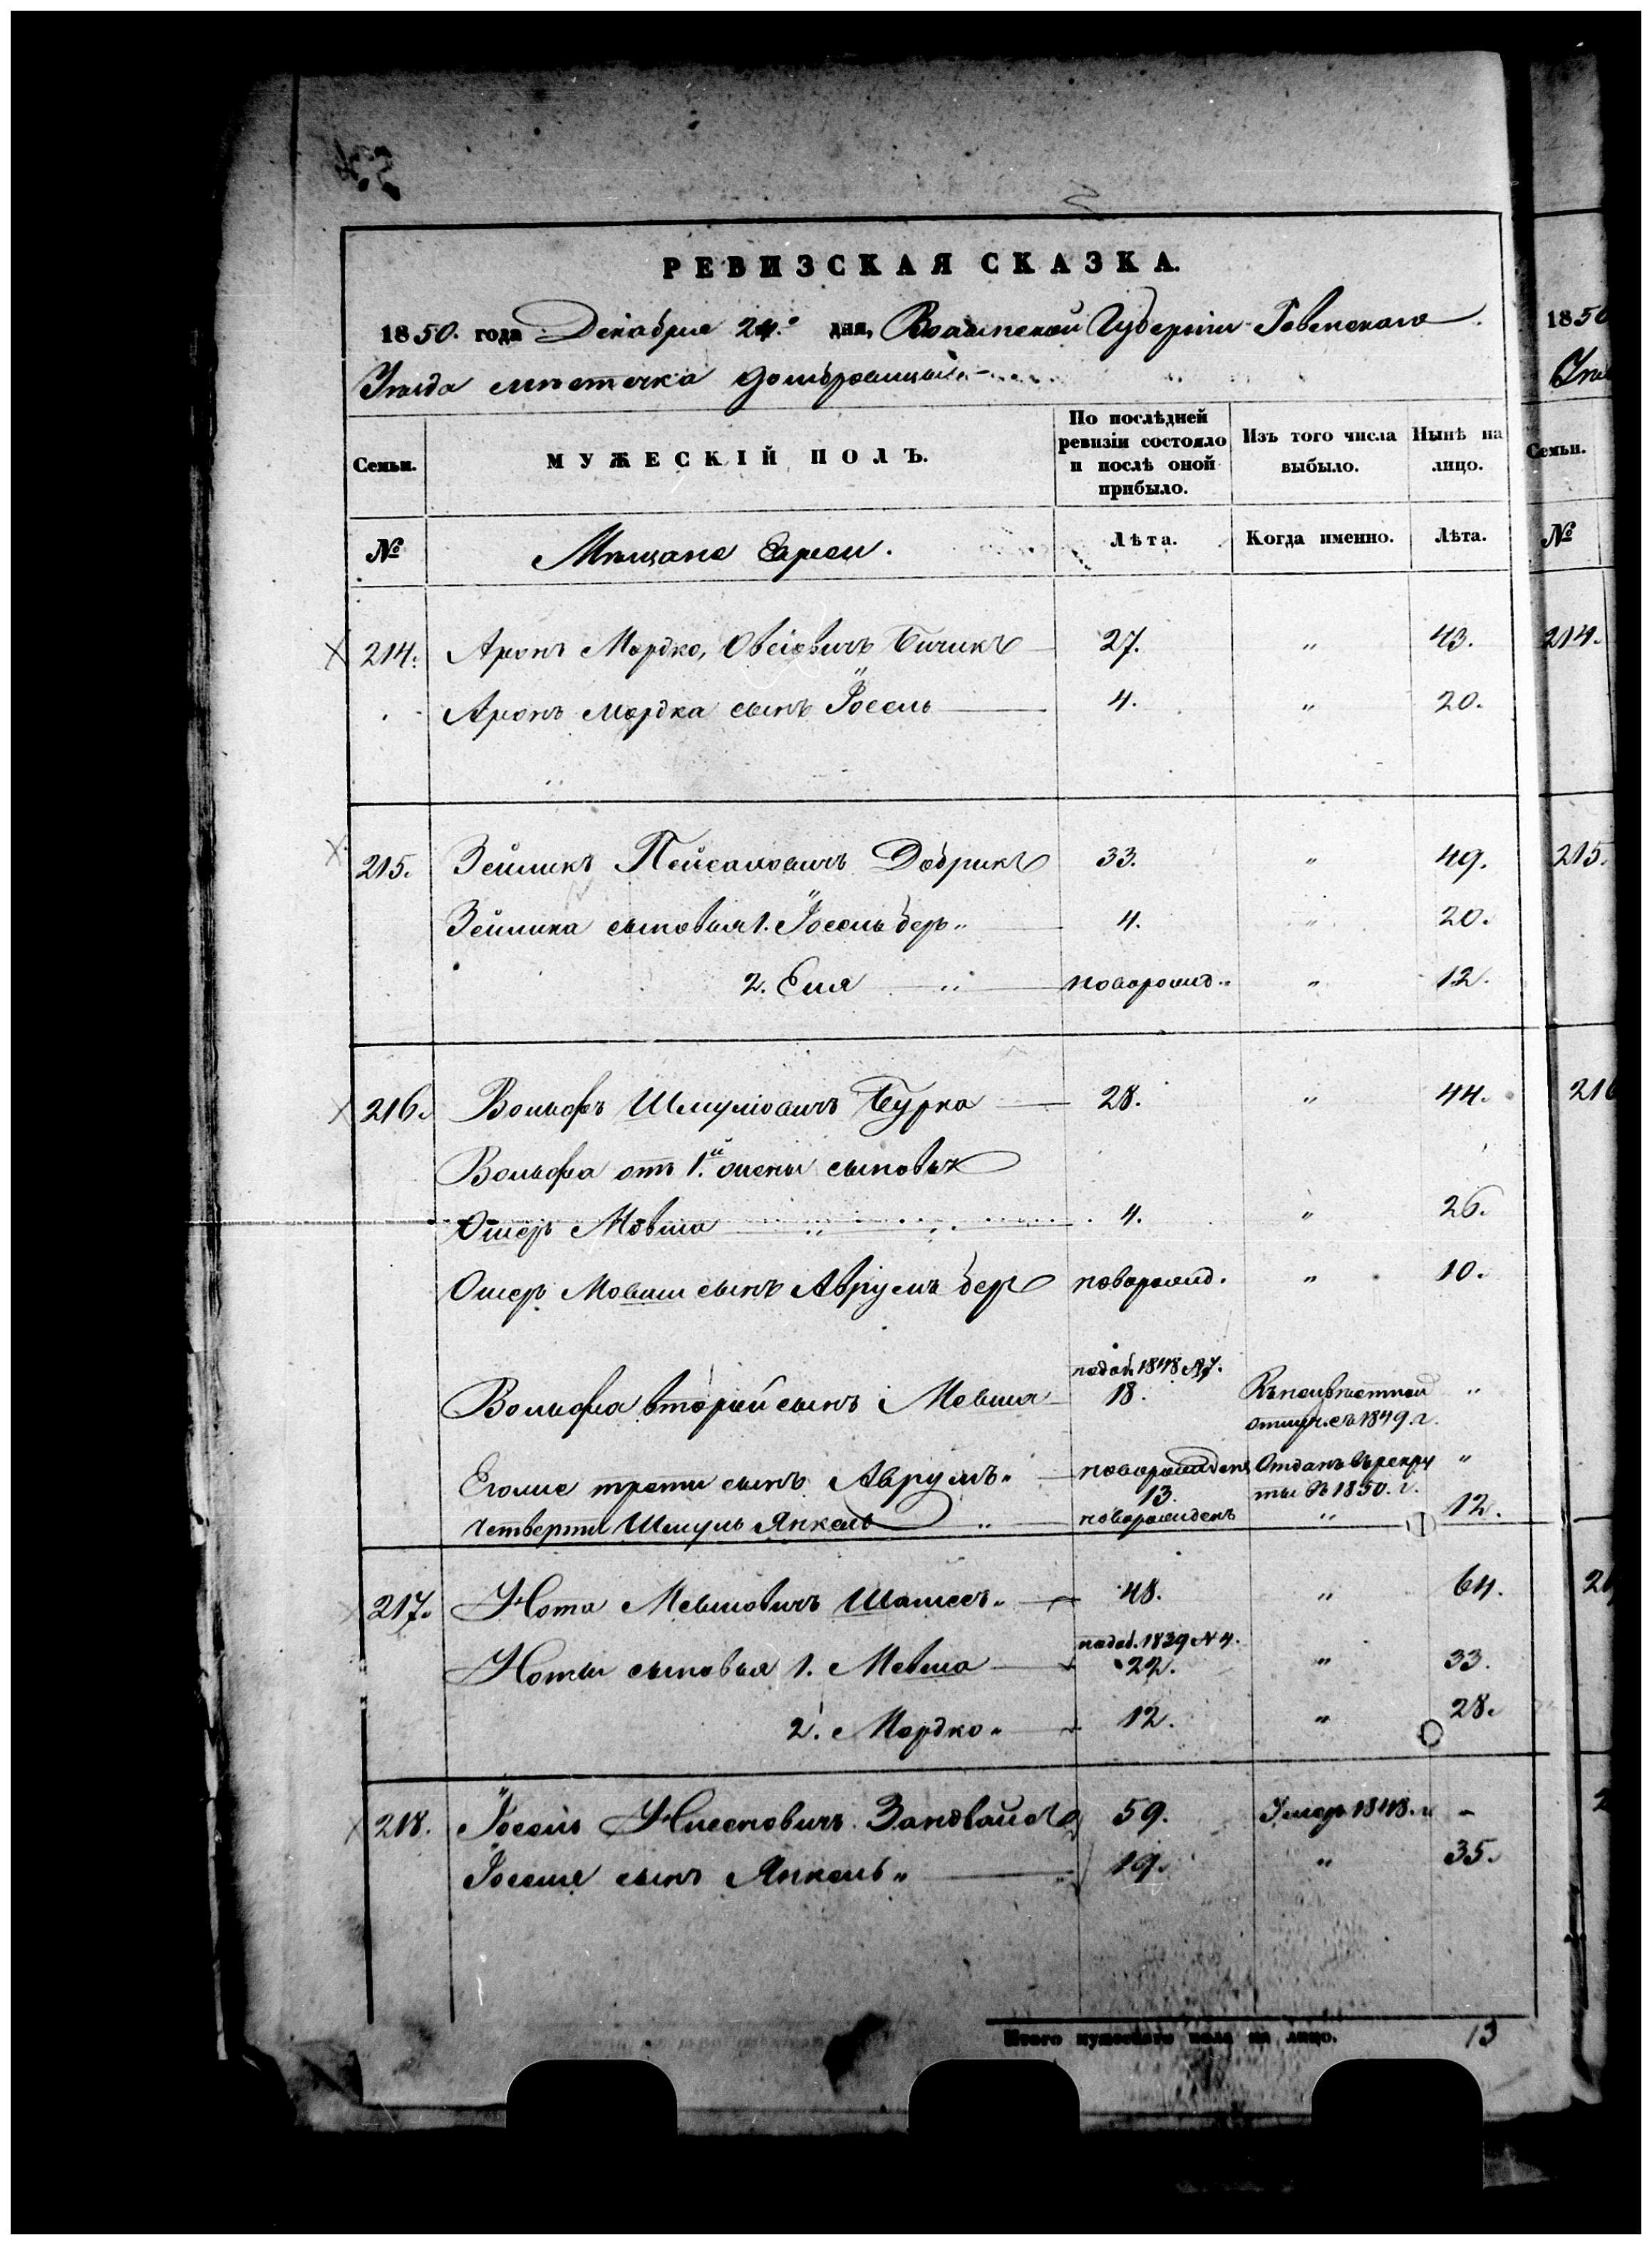 РЕВИЗСКАЯ СКАЗКА.
1850. года Декабря 24.º дня, Волынской Губерніи Ровенскаго
Уѣзда мѣстечка Домбровицы
Семьи.
МУЖЕСКІЙ ПОЛЪ.
По послѣдней ревизіи состояло и послѣ оной прибыло.
Изъ того числа выбыло.
Нынѣ на лицо.
№
Мѣщане Евреи.
Лѣта.
Когда именно.
Лѣта.
214. Аронъ Мордко, Овсіовичъ Бичикъ 27. " 43.
Аронъ Мордка сынъ Іосель 4. " 20.
215. Зейликъ Пейсаховичъ Добрикъ 33. " 49.
Зейлика сыновья 1. Іосель беръ 4. " 20.
2. Еля новорожд. " 12.
216. Вольфъ Шмуліовичъ Бурко 28. " 44.
Вольфа отъ 1.й жены сыновья
Ошеръ Мовша 4. " 26.
Ошеръ Мовши сынъ Аврумъ беръ новорожд. " 10.
Вольфа вторый сынъ Мовша 18. "
1848 №7.
отлуч. съ 1849. г.
Его же трети сынъ Аврумъ новорожденъ Отданъ въ рекру "
13. ты въ 1850. г.
четверти Шмуль Янкель новорожденъ " 12.
217. Нота Мовшовичъ 48. " 64.
1839 №4.
Ноты сыновья 1. Мовша 22. " 33.
2. Мордко 12. " 28.
218. Іосель Нисоновичъ Зандвайсъ 59. Умеръ 1848. г. -
Іоселя сынъ Янкель 19. " 35.
Итого мужескаго пола на лицо. 13
1850
Семьи.
№
214.
215.
216